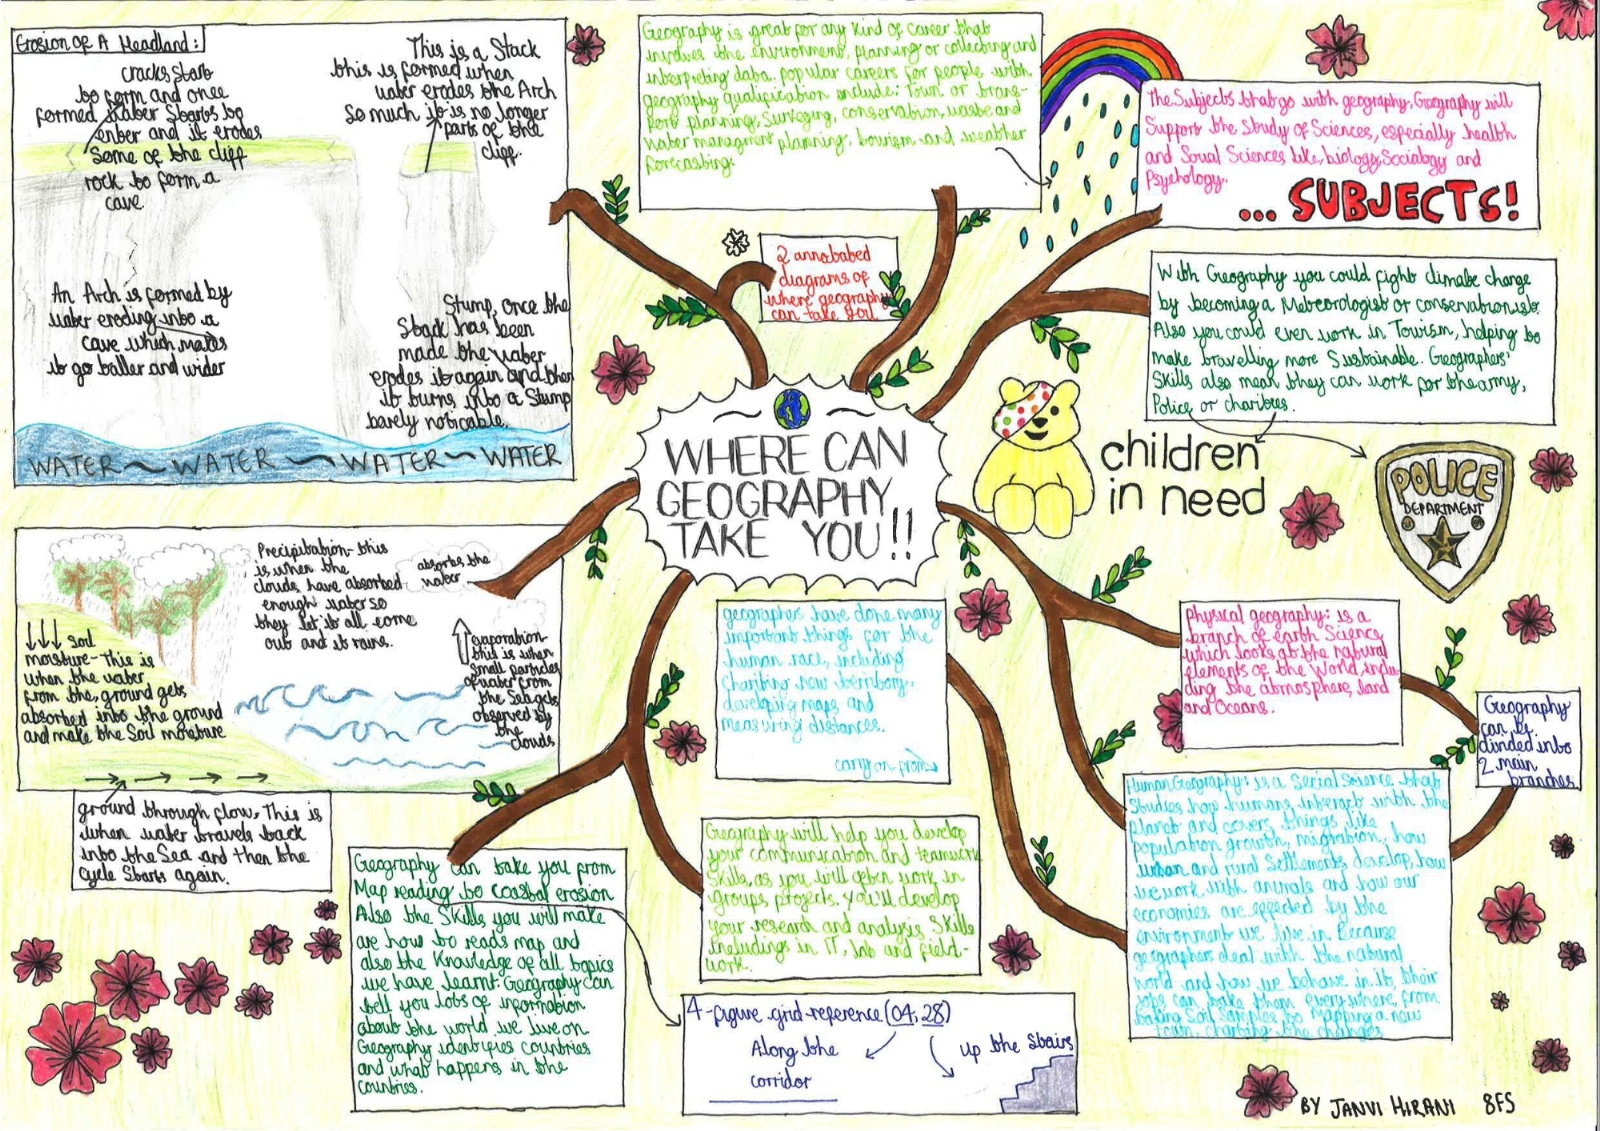 Erosion of A Headland:
cracks start
to form and once
formed water starts to
enter and it erodes
some of the cliff
rock to form a
cave.
This is a Stack
this is formed when
water erodes the Arch
so much it is no longer
parts of the
cliff.
An Arch is formed by
water eroding into a
cave which makes
it go taller and wider
Stump, once the
Stack has been
made the water
erodes it again and then
it turns into a Stump
barely noticable.
WATER WATER WATER WATER
Geography is great for any kind of career that
involves the environment, planning or collecting and
interpreting data, popular careers for people with
geography qualification include: Town or trans-
port planning, Surveying, conservation, waste and
water managment planning, tourism, and weather
forecasting.
The Subjects that go with geography: Geography will
Support the Study of Sciences, especially health
and Social Sciences like, biology, Sociology and
Psychology.
... SUBJECTS!
2 annotated
diagrams of
where geography
can take you
With Geography you could fight climate change
by becoming a Meteorologist or conservationist.
Also you could even work in Tourism, helping to
make travelling more Sustainable. Geographers'
Skills also mean they can work for the army,
Police or charitees.
WHERE CAN
GEOGRAPHY
TAKE YOU!!
children
in need
POLICE
DEPARTMENT
Precipitation- this
is when the
clouds have absorbed
enough water so
they let it all come
out and it rains.
absorbs the
water
evaporation
this is when
small particles
of water from
the Sea gets
observed by
the
clouds
soil
moisture- This is
when the water
from the, ground gets
absorbed into the ground
and make the Soil moisture
ground through flow, This is
when water travels back
into the Sea and then the
cycle Starts again.
geographers have done many
important things for the
human race, including
charting new territory,
developing maps and
measuring distances.
carry on from
Physical geography: is a
branch of earth Science
which looks at the natural
elements of the World, inclu-
ding the atmosphere, land
and Oceans.
Geography
can be
divided into
2 main
branches
Human Geography: is a Social Science that
Studies how humans interact with the
planet and covers things like
population growth, migration, how
urban and rural Settlements develop, how
we work with animals and how our
economies are effected by the
environment we live in Because
geographers deal with the natural
world and how we behave in it, their
jobs can take them everywhere, from
taking Soil Samples to mapping a new
town, charting the changes
Geography will help you develop
your communication and teamwork
Skills, as you will often work in
groups, projects. You'll develop
your research and analysis, Skills
includings in IT, lab and field-
work.
Geography can take you from
Map reading to coastal erosion
Also the Skills you will make
are how to reads map and
also the Knowledge of all topics
we have learnt. Geography can
tell you lots of information
about the world we live on
Geography identifies countries
and what happens in the
countries.
4-figure grid-reference (04, 28)
Along the
corridor
up the stairs
BY JANVI HIRANI 8FS